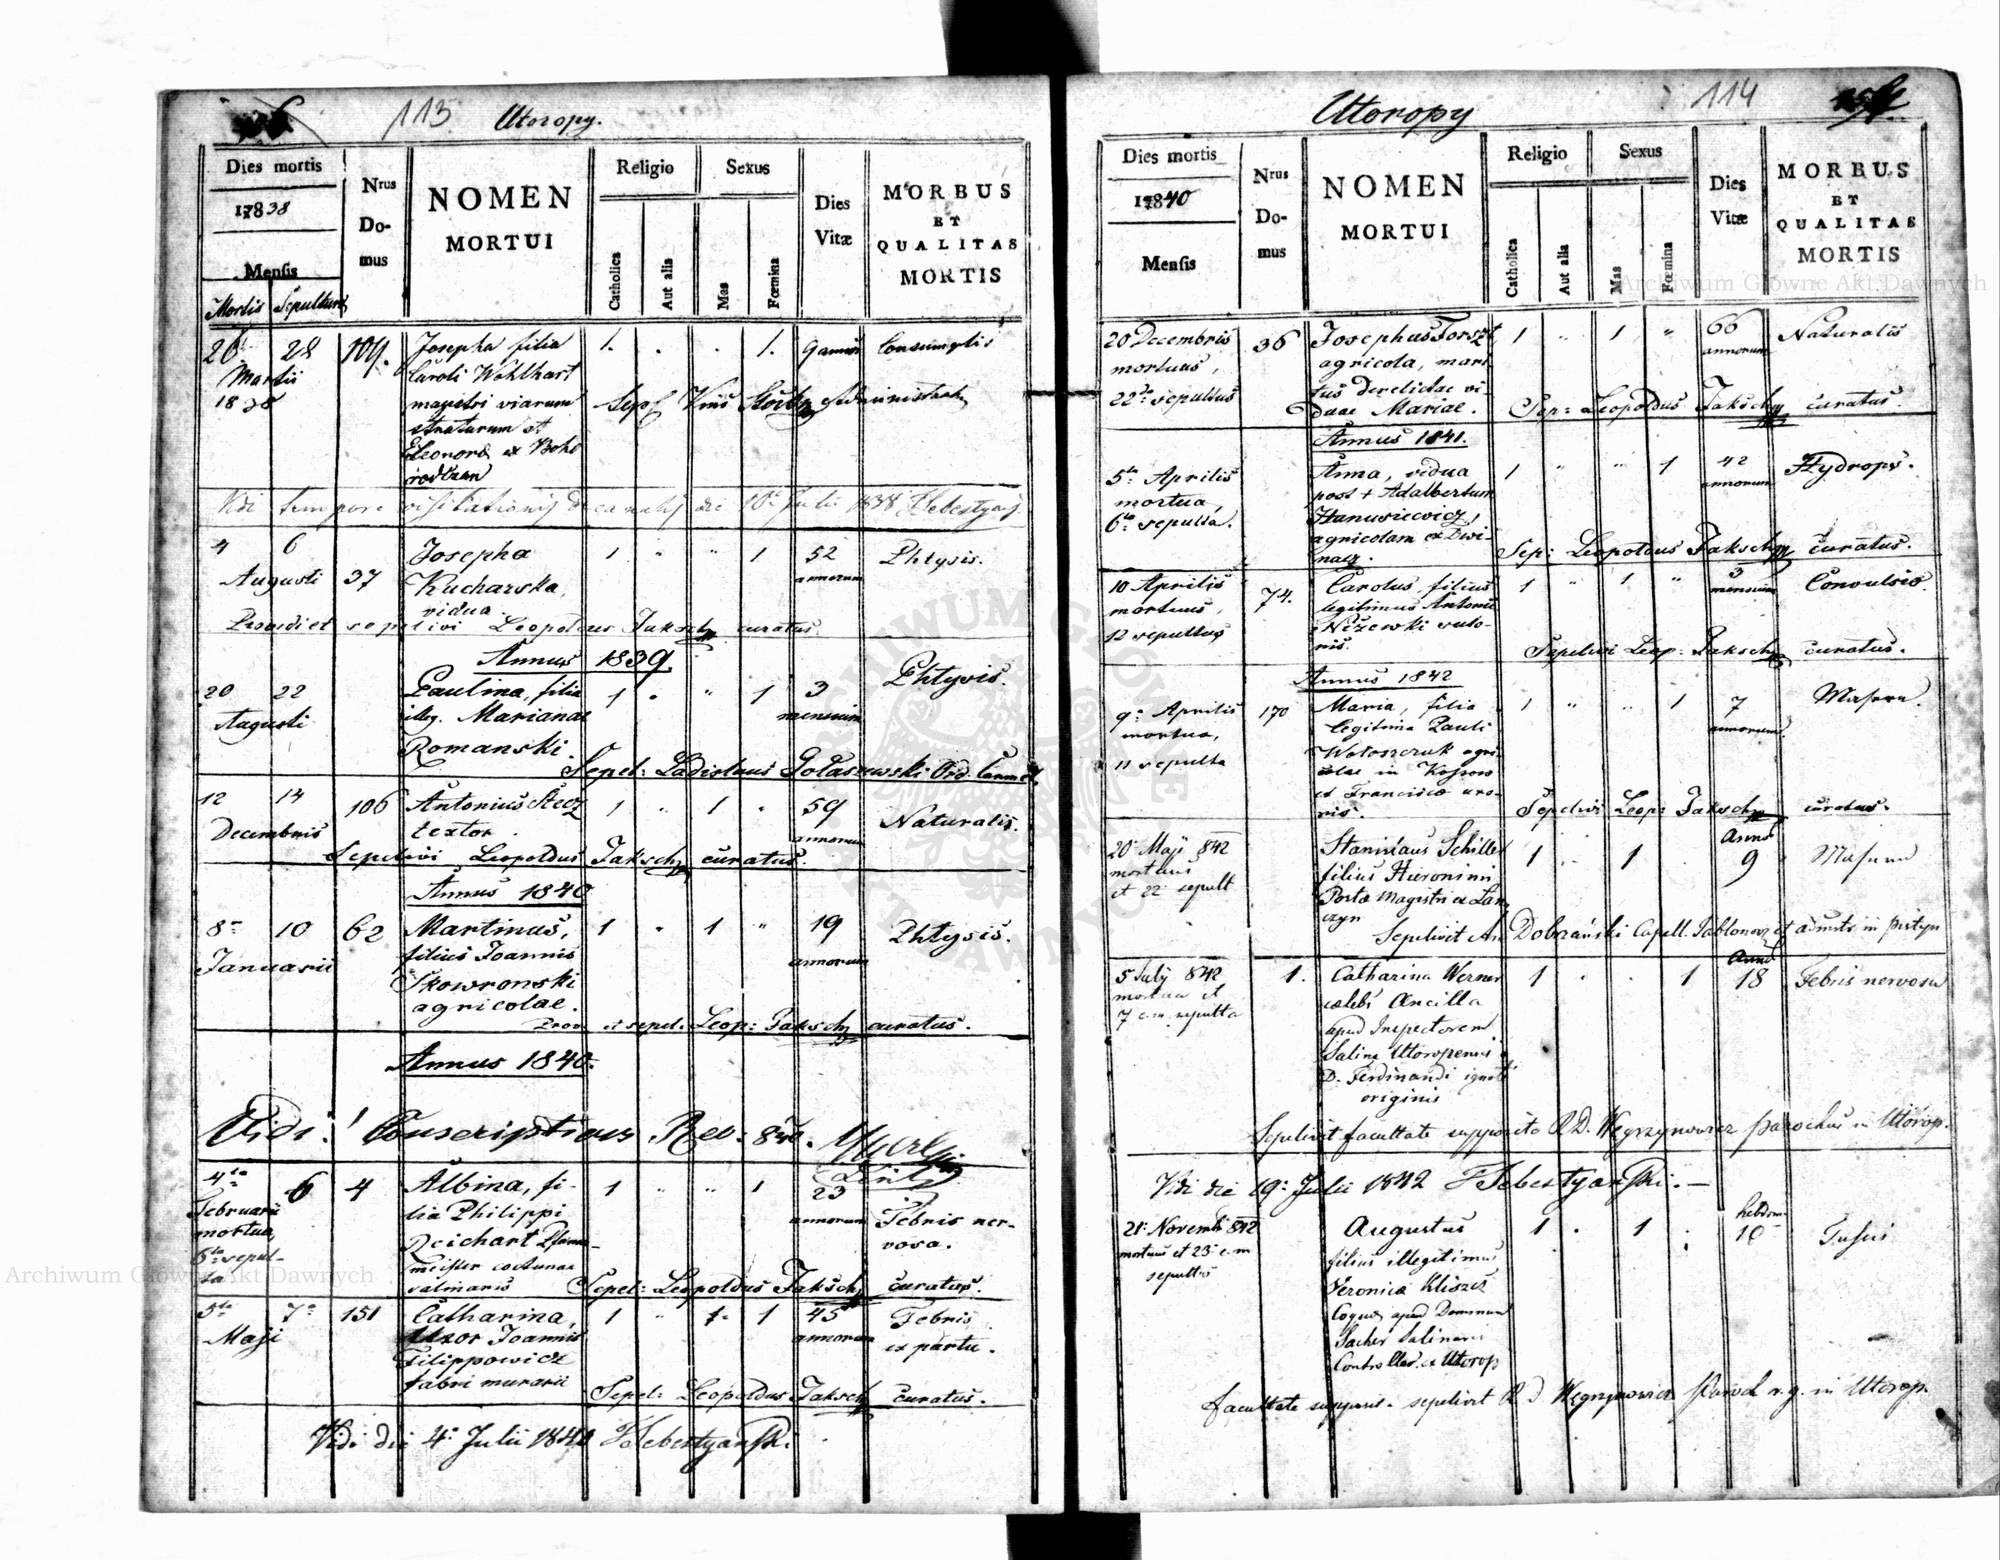 113 Utoropy.
Dies mortis
Nrus Domus
NOMEN MORTUI
Religio
Sexus
Dies Vitæ
MORBUS ET QUALITAS MORTIS
1838
Mensis
Mortis Sepulturæ
Catholica
Aut alia
Mas
Fœmina
26 28 109. Josepha filia 1. . . 1. 9 annor Consumptis
Martii Caroli Wohlhart
1838 magistri viarum
straturum et
Eleonora ex Boho
rodczan
Vidi tempore visitationis decanalis die 10 Julii 1838
4 6 Josepha 1 " " 1 52 Phtysis.
Augusti 37 Kucharska, annorum
vidua.
Providi et sepelivi Leopoldus Jaksch curatus.
Annus 1839.
20 22 Paulina, filia 1 " " 1 3 Phtysis.
Augusti illeg. Marianae mensium
Romanski.
Sepel: Ladislaus Gołaszewski Ord. Carmel.
12 14 106 Antonius Stecz 1 " 1 " 59 Naturalis.
Decembris textor. annorum
Sepelivi Leopoldus Jaksch curatus.
Annus 1840
8 10 62 Martinus, 1 " 1 " 19 Phtysis.
Januarii filius Joannis annorum
Skowronski
agricolae.
Prov. et sepel. Leop: Jaksch curatus.
Annus 1840.
Vidi! Conscriptions Rev: 840.
4ta 6 4 Albina, fi- 1 " " 1 23 Febris ner-
Februarii lia Philippi annorum vosa.
mortua, Reichart Pfann-
6ta sepul- meister cocturae
ta salinaris
Sepel: Leopoldus Jaksch curatus.
5ta 7a 151 Catharina, 1 " 1 45 Febris
Maji Uxor Joannis annorum ex partu.
Filippowicz
fabri murarii
Sepel: Leopoldus Jaksch curatus.
Vidi die 4 Julii 1840
Utoropy 114
Dies mortis
Nrus Domus
NOMEN MORTUI
Religio
Sexus
Dies Vitæ
MORBUS ET QUALITAS MORTIS
1840
Mensis
Catholica
Aut alia
Mas
Fœmina
20 Decembris 36 Josephus Forszt 1 " 1 " 66 Naturalis
mortuus, agricola, mari- annorum
22do sepultus tus derelictae vi-
duae Mariae.
Sep: Leopoldus Jaksch curatus.
Annus 1841.
5ta Aprilis Anna, vidua 1 " " 1 42 Hydrops.
mortua, post + Adalbertum annorum
6ta sepulta. Hanusiewicz,
agricolam ex Dwi-
nacz.
Sep: Leopoldus Jaksch curatus.
10 Aprilis 74. Carolus, filius 1 " 1 " 3 Convulsio.
mortuus, legitimus Antonii mensium
12 sepultus Niżewski suto-
ris.
Sepelivi Leop: Jaksch curatus.
Annus 1842
9a Aprilis 170 Maria, filia 1 " " 1 7 Masern.
mortua, legitima Pauli annorum.
11 sepulta Wołoszczuk agri-
colae in Kossow
et Francisca uxo-
ris.
Sepelivi Leop: Jaksch curatus.
20 Maji 842 Stanislaus Schiller 1 1 Anno 9 Masern
mortuus filius Hieronimi
et 22 sepult Postæ Magistri ex Łan-
czyn
Sepelivit An Dobrzański Capell. Jablonov et admstr in Pistyn
5 July 842 1. Catharina Werner 1 . . 1 Anno 18 Febris nervosa
mortua et cælebs Ancilla
7 e.m. sepulta apud Inspectorem
Salinæ Utoropensis
D. Ferdinandi ignoti
originis
Sepelivit facultate supposita R.D. Węgrzynowicz parochus in Utorop.
Vidi die 19 Julii 1842
21 Novemb 842 Augustus 1 . 1 . hebdom 10 Tussis
mortuus et 23 e.m. filius illegitimus
sepultus Veronica Kliszcz
Coqua apud Dominum
Sacher Salinaris
Controllor. ex Utorop
facultate supposit. sepelivit R D Węgrzynowicz Paroch r.g. in Utorop.
Archiwum Główne Akt Dawnych
Archiwum Główne Akt Dawnych
ARCHIWUM GŁÓWNE AKT DAWNYCH